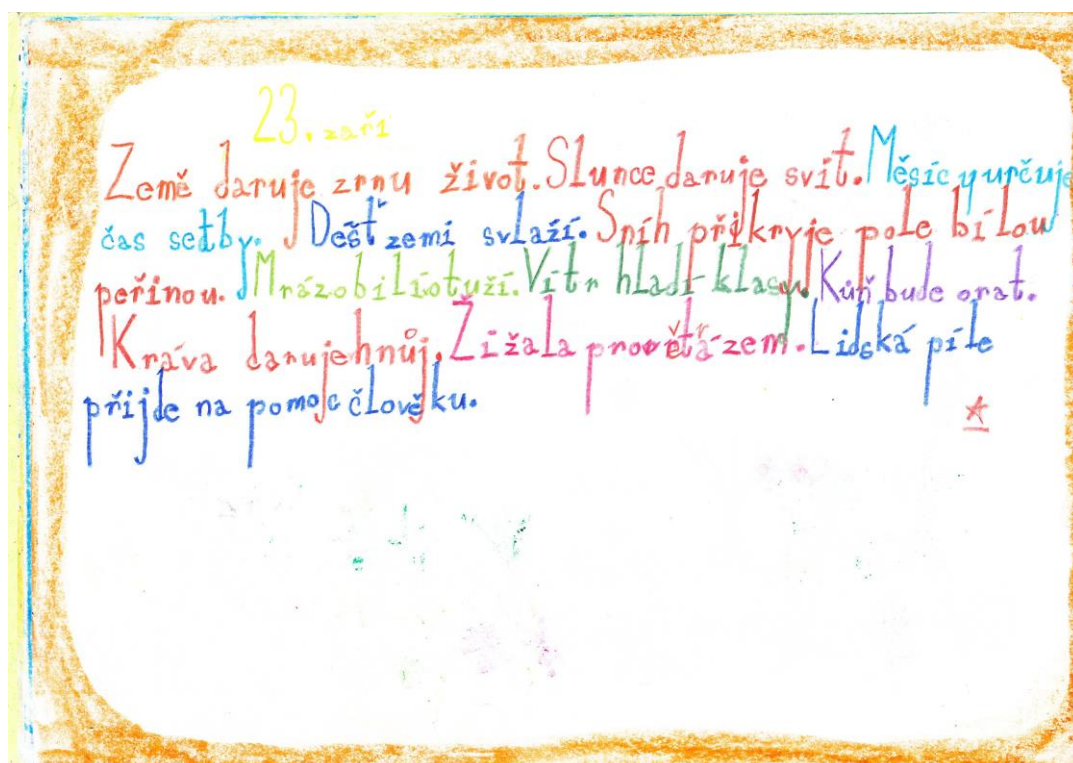 23. září
Země daruje zrnu život. Slunce daruje svit. Měsíc yurčuje
čas setby. Dešť zemi svlaží. Sníh přikryje pole bílou
peřinou. Mráz obilí otuží. Vítr hladí klasy. Kůň bude orat.
Kráva daruje hnůj. Žížala provětrá zem. Lidská píle
přijde na pomoc člověku.